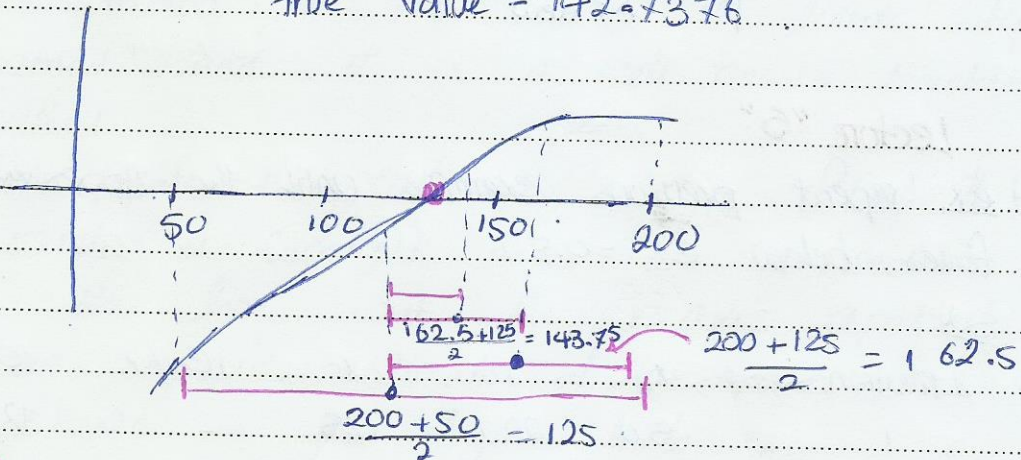 true value = 142.7376
50 100 150 200
162.5+125/2 = 143.75
200+125/2 = 162.5
200+50/2 = 125